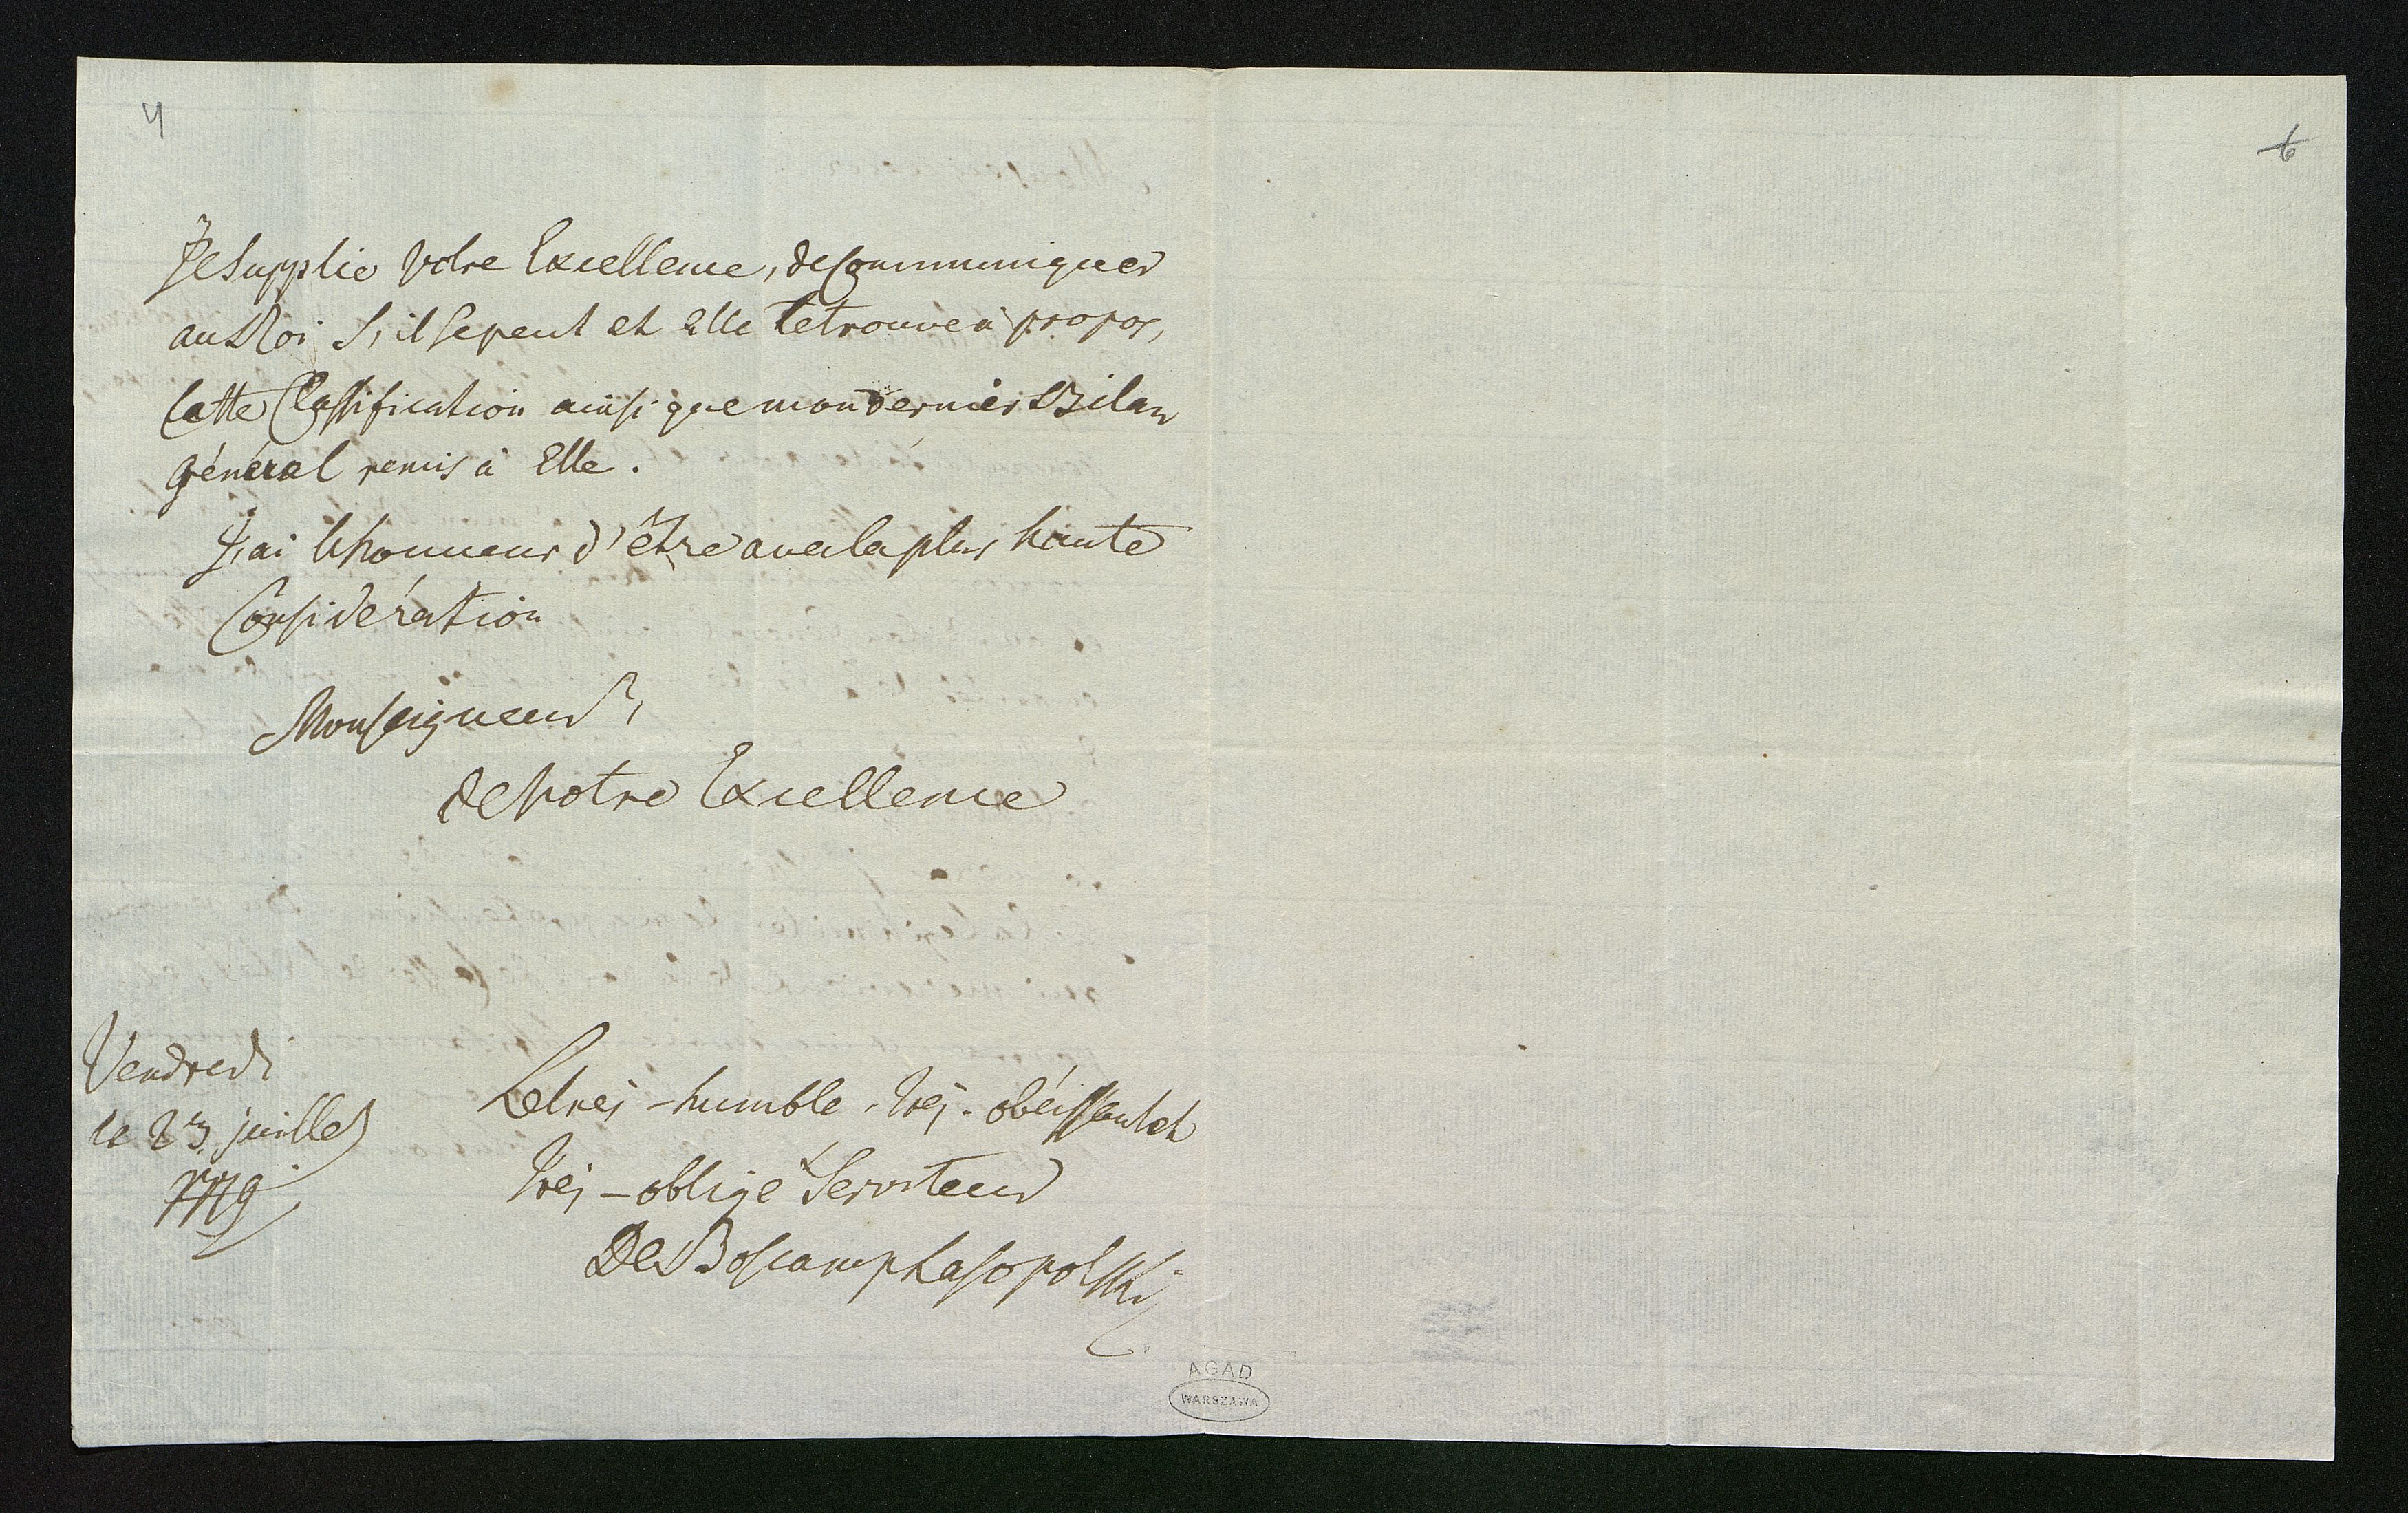 4
6
Je supplie Votre Excellence, de Communiquer
au Roi S'il se peut et Elle le trouve à propos,
Cette Classification ainsi que mon dernier Bilan
général remis à Elle.
J'ai l'honneur d'être avec la plus haute
Considération
Monseigneur,
de Votre Excellence
Vendredi
le 23 juillet
1779
Le très-humble, très-obéissant et
très-obligé Serviteur
De Boscamp Lasopolski
AGAD
WARSZAWA